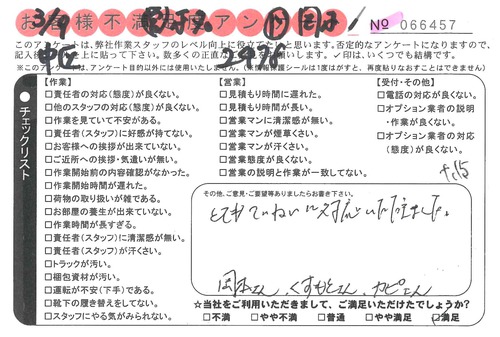 お客様不満足度アンケート
3/9
№ 066457
このアンケートは、弊社作業スタッフのレベル向上に役立てたいと思います。否定的なアンケートになりますので、
記入後
上に貼って下さい。数多くの正直な
お願いします。✓印は、いくつでも結構です。
※このアンケートは、アンケート目的以外には使用いたしません。(情報保護シールは1度はがすと、再度貼りなおすことはできません)
チェックリスト
【作業】
□責任者の対応(態度)が良くない。
□他のスタッフの対応(態度)が良くない。
□作業を見ていて不安がある。
□責任者(スタッフ)に好感が持てない。
□お客様への挨拶が出来ていない。
□ご近所への挨拶・気遣いが無い。
□作業開始前の内容確認がなかった。
□作業開始時間が遅れた。
□荷物の取り扱いが雑である。
□お部屋の養生が出来ていない。
□作業時間が長すぎる。
□責任者(スタッフ)に清潔感が無い。
□責任者(スタッフ)が汗くさい。
□トラックが汚い。
□梱包資材が汚い。
□運転が不安(下手)である。
□靴下の履き替えをしてない。
□スタッフにやる気がみられない。
【営業】
□見積もり時間に遅れた。
□見積もり時間が長い。
□営業マンに清潔感が無い。
□営業マンが煙草くさい。
□営業マンが汗くさい。
□営業態度が良くない。
□営業の説明と作業が一致してない。
【受付・その他】
□電話の対応が良くない。
□オプション業者の説明
・作業が良くない。
□オプション業者の対応
(態度)が良くない。
その他、ご意見・ご要望等ありましたらお書き下さい。
とてもていねいに対応いただきました。
岡本さん くすもとさん カピさん
☆当社をご利用いただきまして、ご満足いただけたでしょうか?
□不満 □やや不満 □普通 □やや満足 □満足